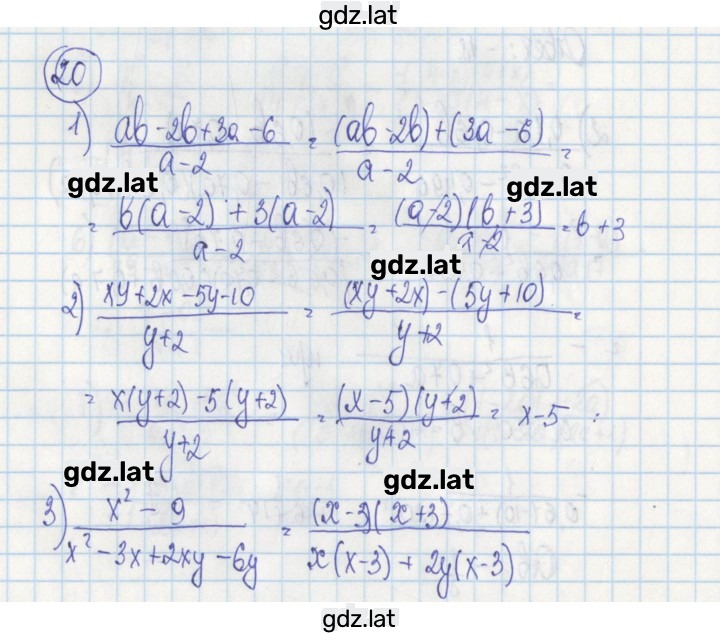 gdz.lat
20
1) (ab - 2b + 3a - 6)/(a - 2) = ((ab - 2b) + (3a - 6))/(a - 2) =
gdz.lat gdz.lat
= (b(a - 2) + 3(a - 2))/(a - 2) = ((a - 2)(b + 3))/(a - 2) = b + 3
gdz.lat
2) (xy + 2x - 5y - 10)/(y + 2) = ((xy + 2x) - (5y + 10))/(y + 2) =
= (x(y + 2) - 5(y + 2))/(y + 2) = ((x - 5)(y + 2))/(y + 2) = x - 5 ;
gdz.lat gdz.lat
3) (x² - 9)/(x² - 3x + 2xy - 6y) = ((x - 3)(x + 3))/(x(x - 3) + 2y(x - 3))
gdz.lat